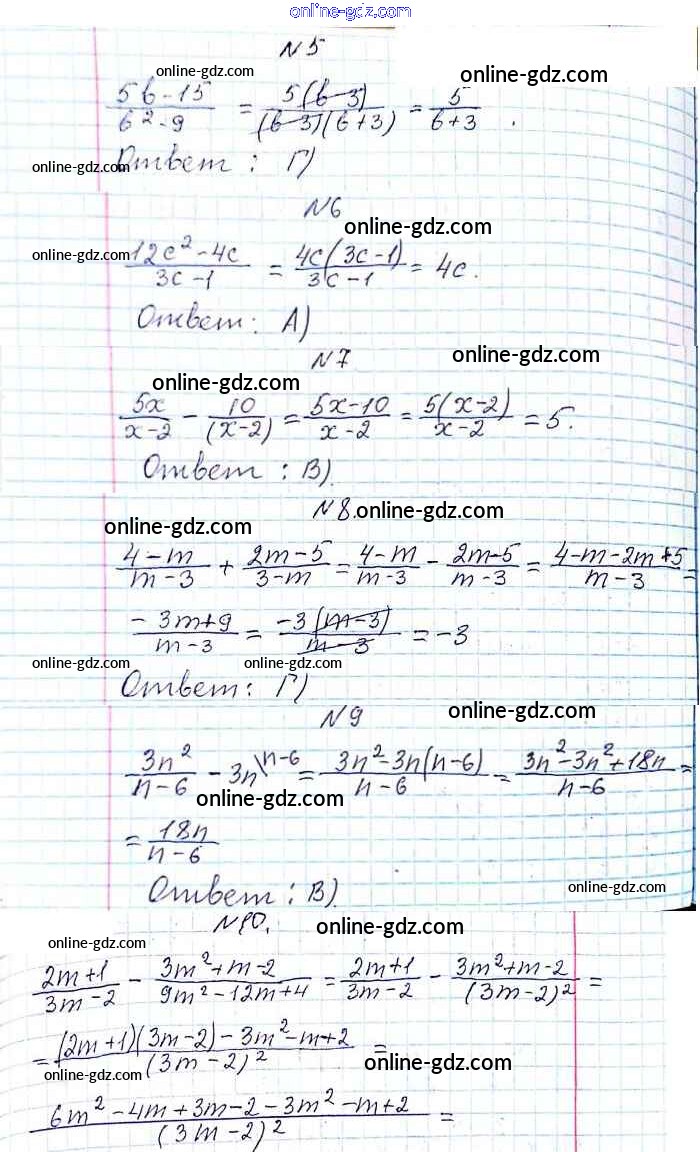 online-gdz.com
№5
online-gdz.com online-gdz.com
(5b-15)/(b²-9) = (5(b-3))/((b-3)(b+3)) = 5/(b+3).
online-gdz.com
Ответ: Г)
№6
online-gdz.com
online-gdz.com
(12c²-4c)/(3c-1) = (4c(3c-1))/(3c-1) = 4c.
Ответ: А)
№7
online-gdz.com
online-gdz.com
5x/(x-2) - 10/(x-2) = (5x-10)/(x-2) = (5(x-2))/(x-2) = 5.
Ответ: В)
№8.
online-gdz.com
online-gdz.com
(4-m)/(m-3) + (2m-5)/(3-m) = (4-m)/(m-3) - (2m-5)/(m-3) = (4-m-2m+5)/(m-3) =
(-3m+9)/(m-3) = (-3(m-3))/(m-3) = -3
online-gdz.com online-gdz.com
Ответ: Г)
№9
online-gdz.com
3n²/(n-6) - 3n\n-6 = (3n²-3n(n-6))/(n-6) = (3n²-3n²+18n)/(n-6) =
online-gdz.com
= 18n/(n-6)
Ответ: В)
online-gdz.com
№10.
online-gdz.com
online-gdz.com
(2m+1)/(3m-2) - (3m²+m-2)/(9m²-12m+4) = (2m+1)/(3m-2) - (3m²+m-2)/(3m-2)² =
= ((2m+1)(3m-2)-3m²-m+2)/(3m-2)² =
online-gdz.com
online-gdz.com
(6m²-4m+3m-2-3m²-m+2)/(3m-2)² =